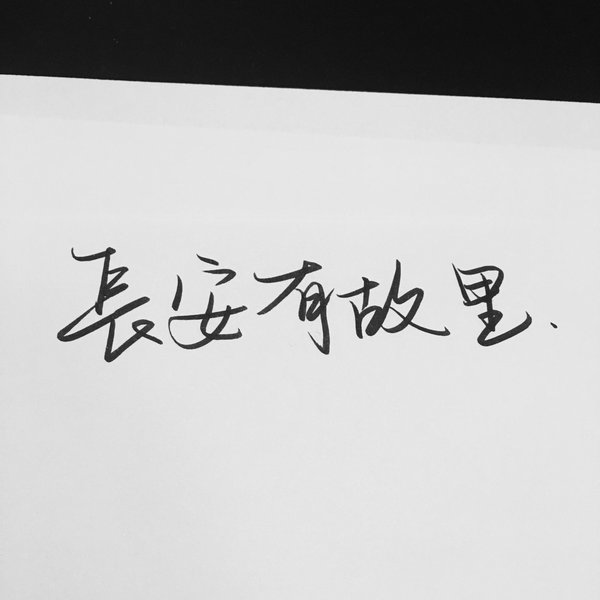 長安有故里.